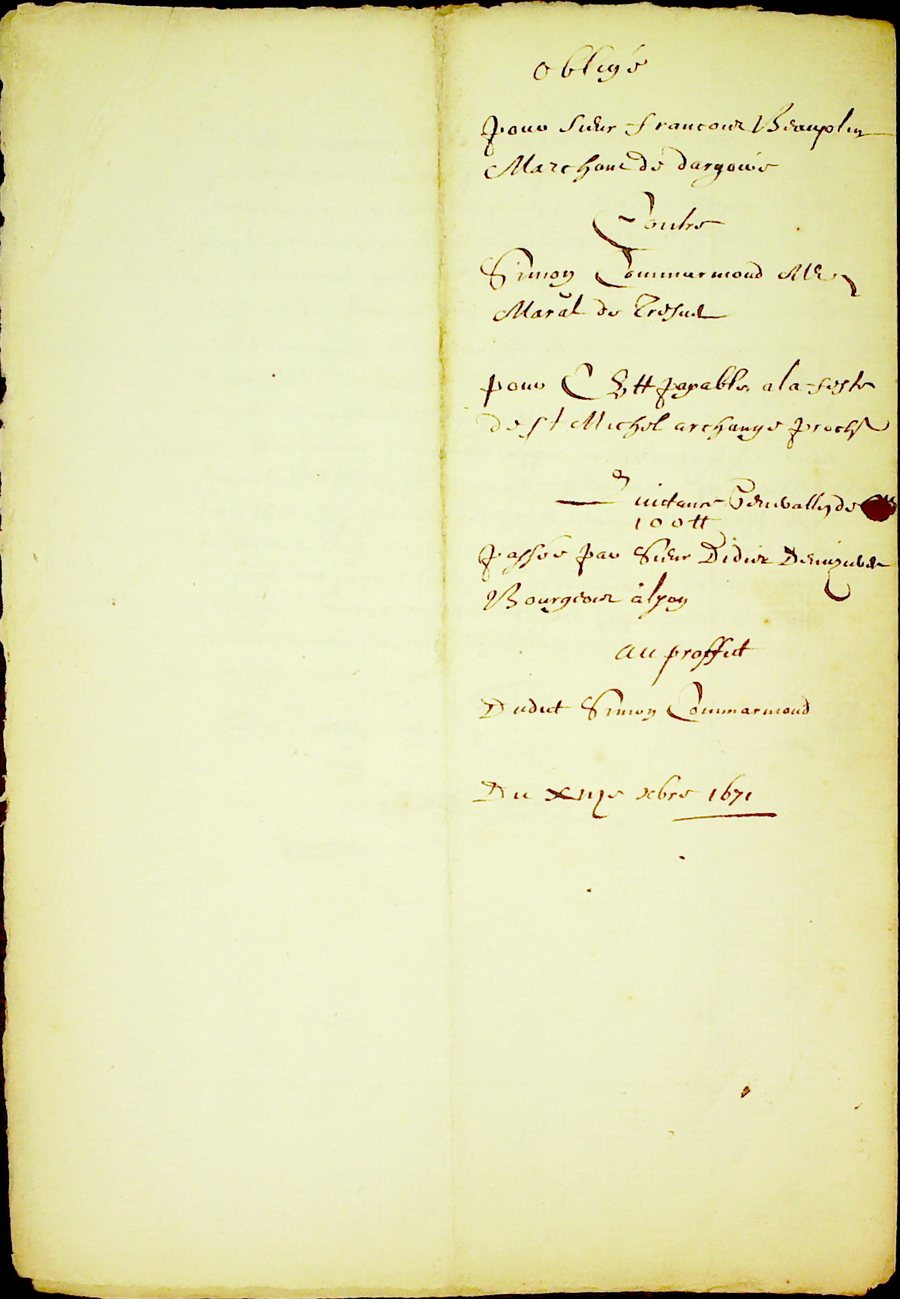 oblige
pour sieur francois Beauplin
Marchant de dargoire
Contre
Simon Commarmond Me
Maral de
pour C payable a la feste
de st Michel archange proch
Quictance de
100 tt
passée par Sieur Didier
Bourgeois à lyon
au proffict
Dudict Simon Commarmond
Du xbre 1671